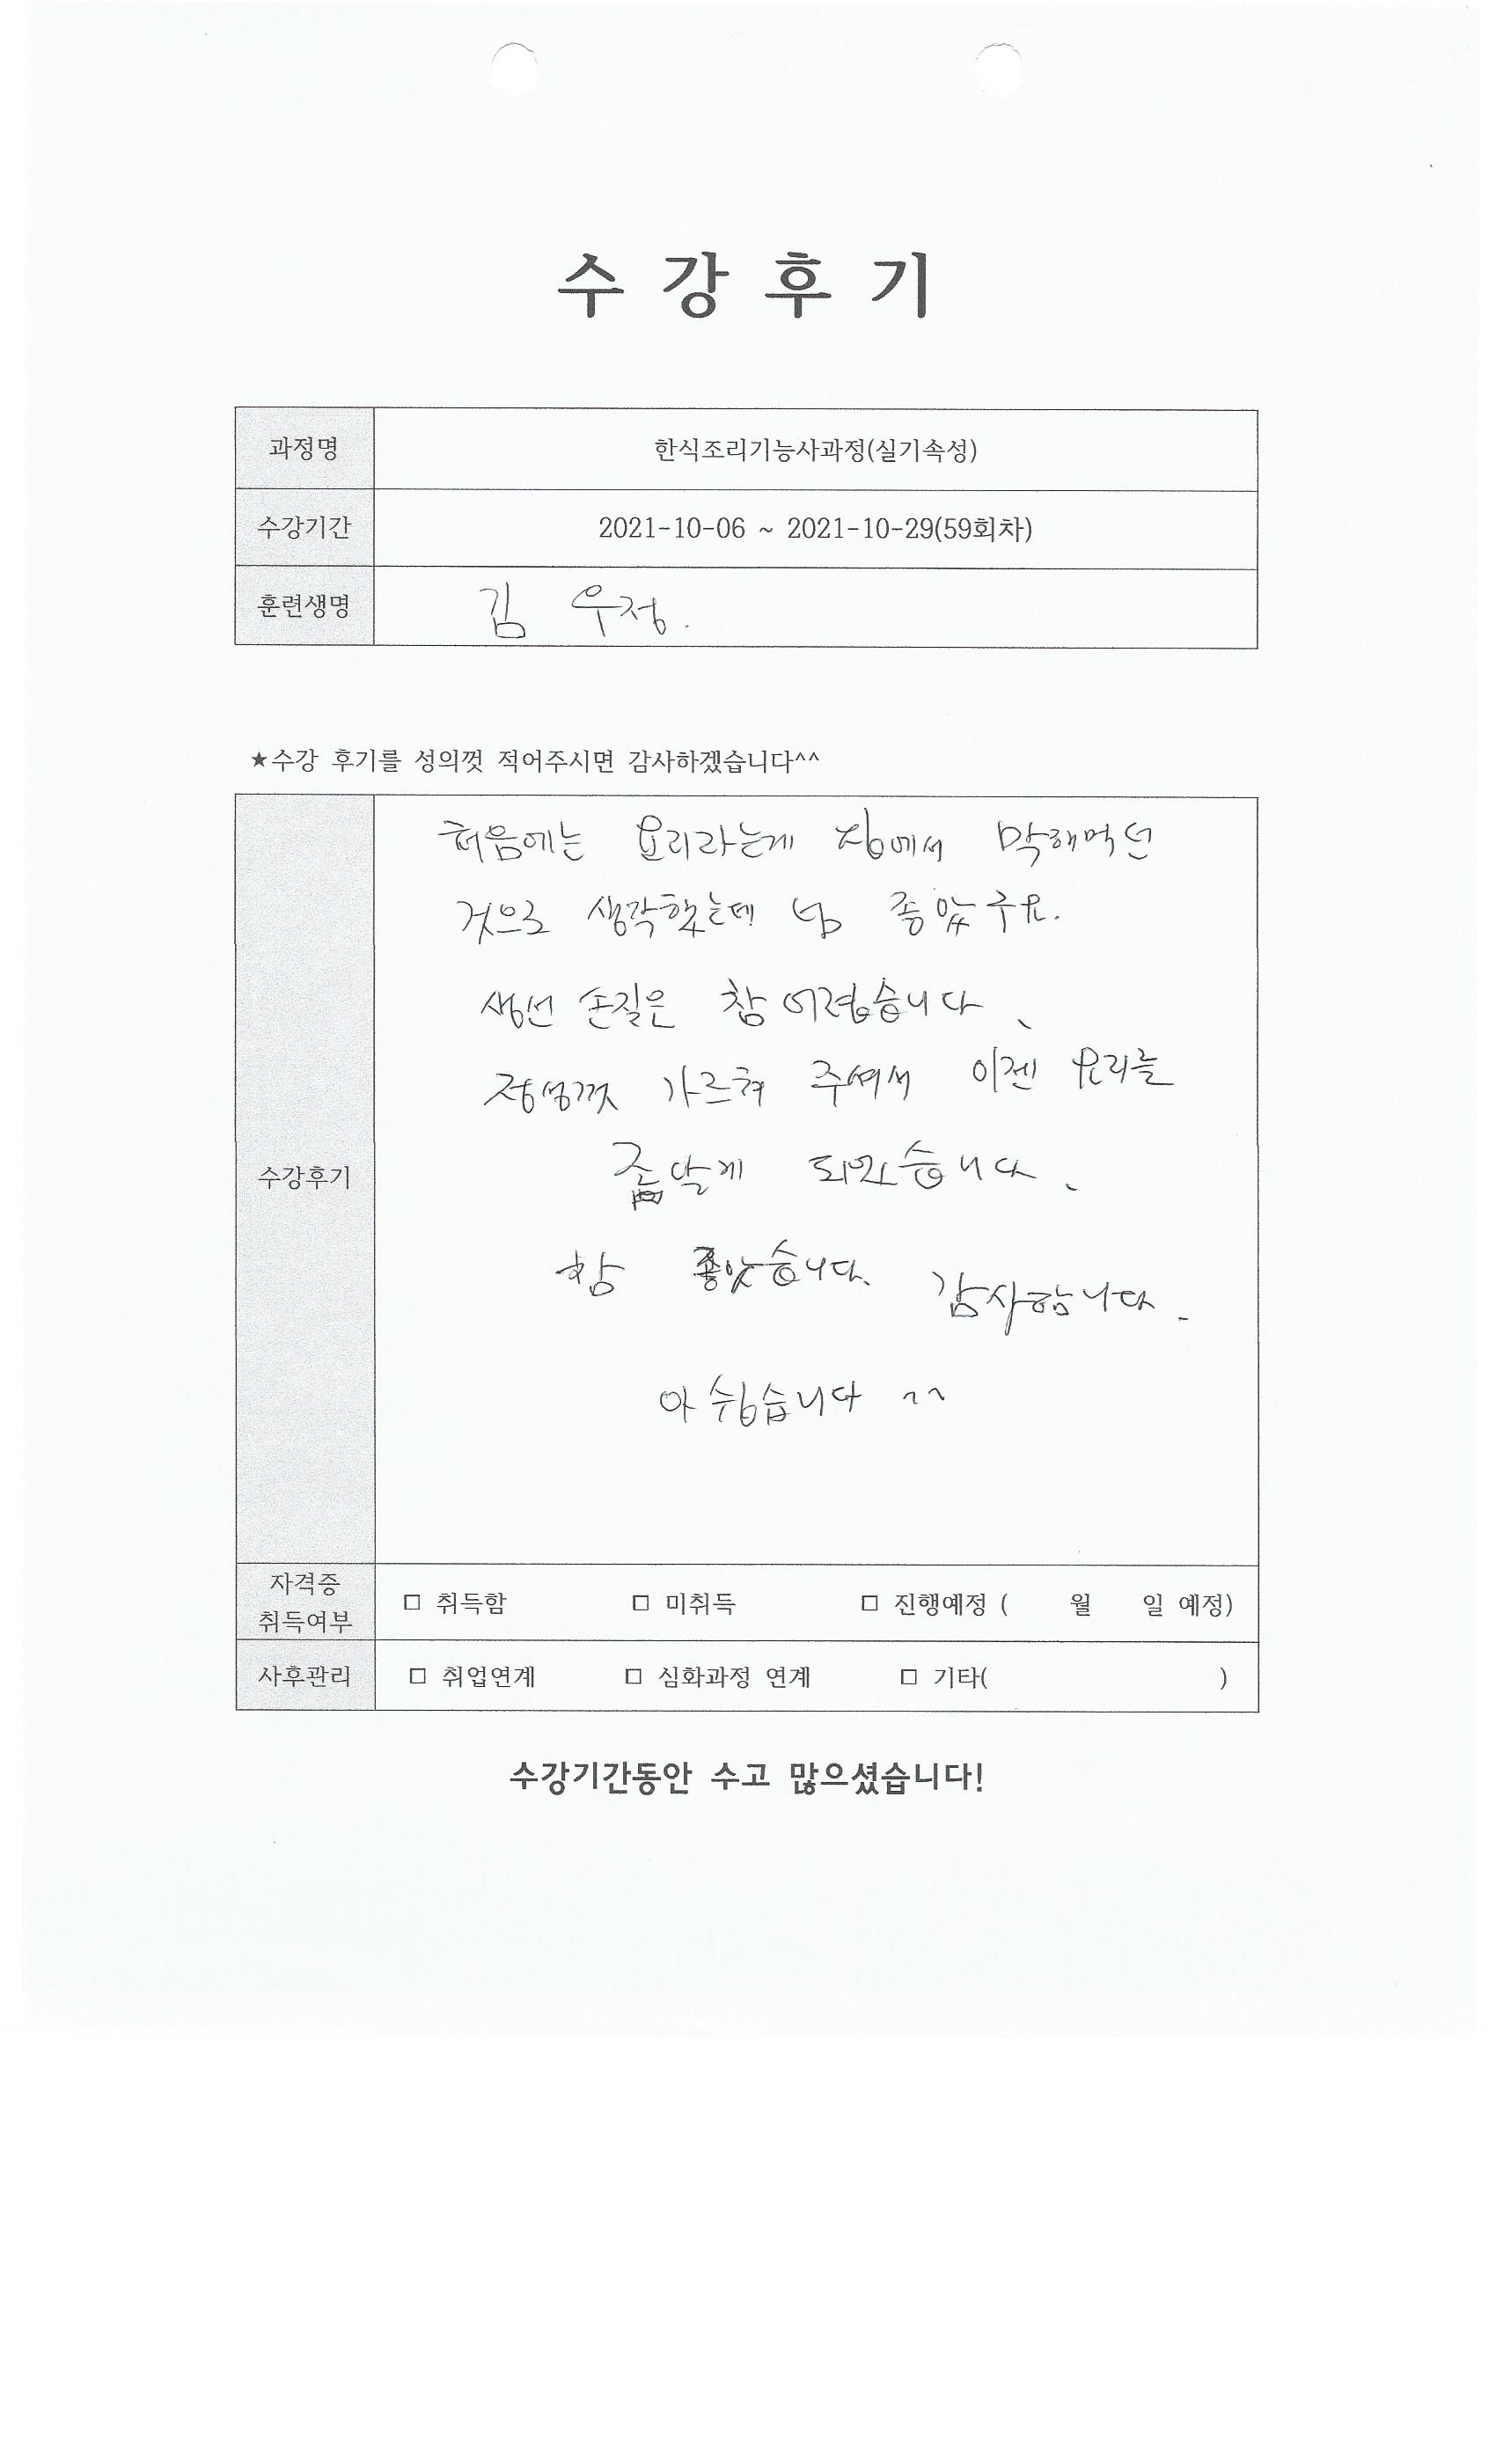 수 강 후 기
과정명 한식조리기능사과정(실기속성)
수강기간 2021-10-06 ~ 2021-10-29(59회차)
훈련생명 김 우정.
★수강 후기를 성의껏 적어주시면 감사하겠습니다^^
수강후기
처음에는 요리라는게 집에서 막해먹던
것으로 생각했는데 넘 좋았구요.
생선 손질은 참 어려웠습니다.
정성껏 가르쳐 주셔서 이젠 요리를
좀 알게 되었습니다.
참 좋았습니다. 감사합니다.
아쉽습니다 ^^
자격증
취득여부 □ 취득함 □ 미취득 □ 진행예정 ( 월 일 예정)
사후관리 □ 취업연계 □ 심화과정 연계 □ 기타( )
수강기간동안 수고 많으셨습니다!